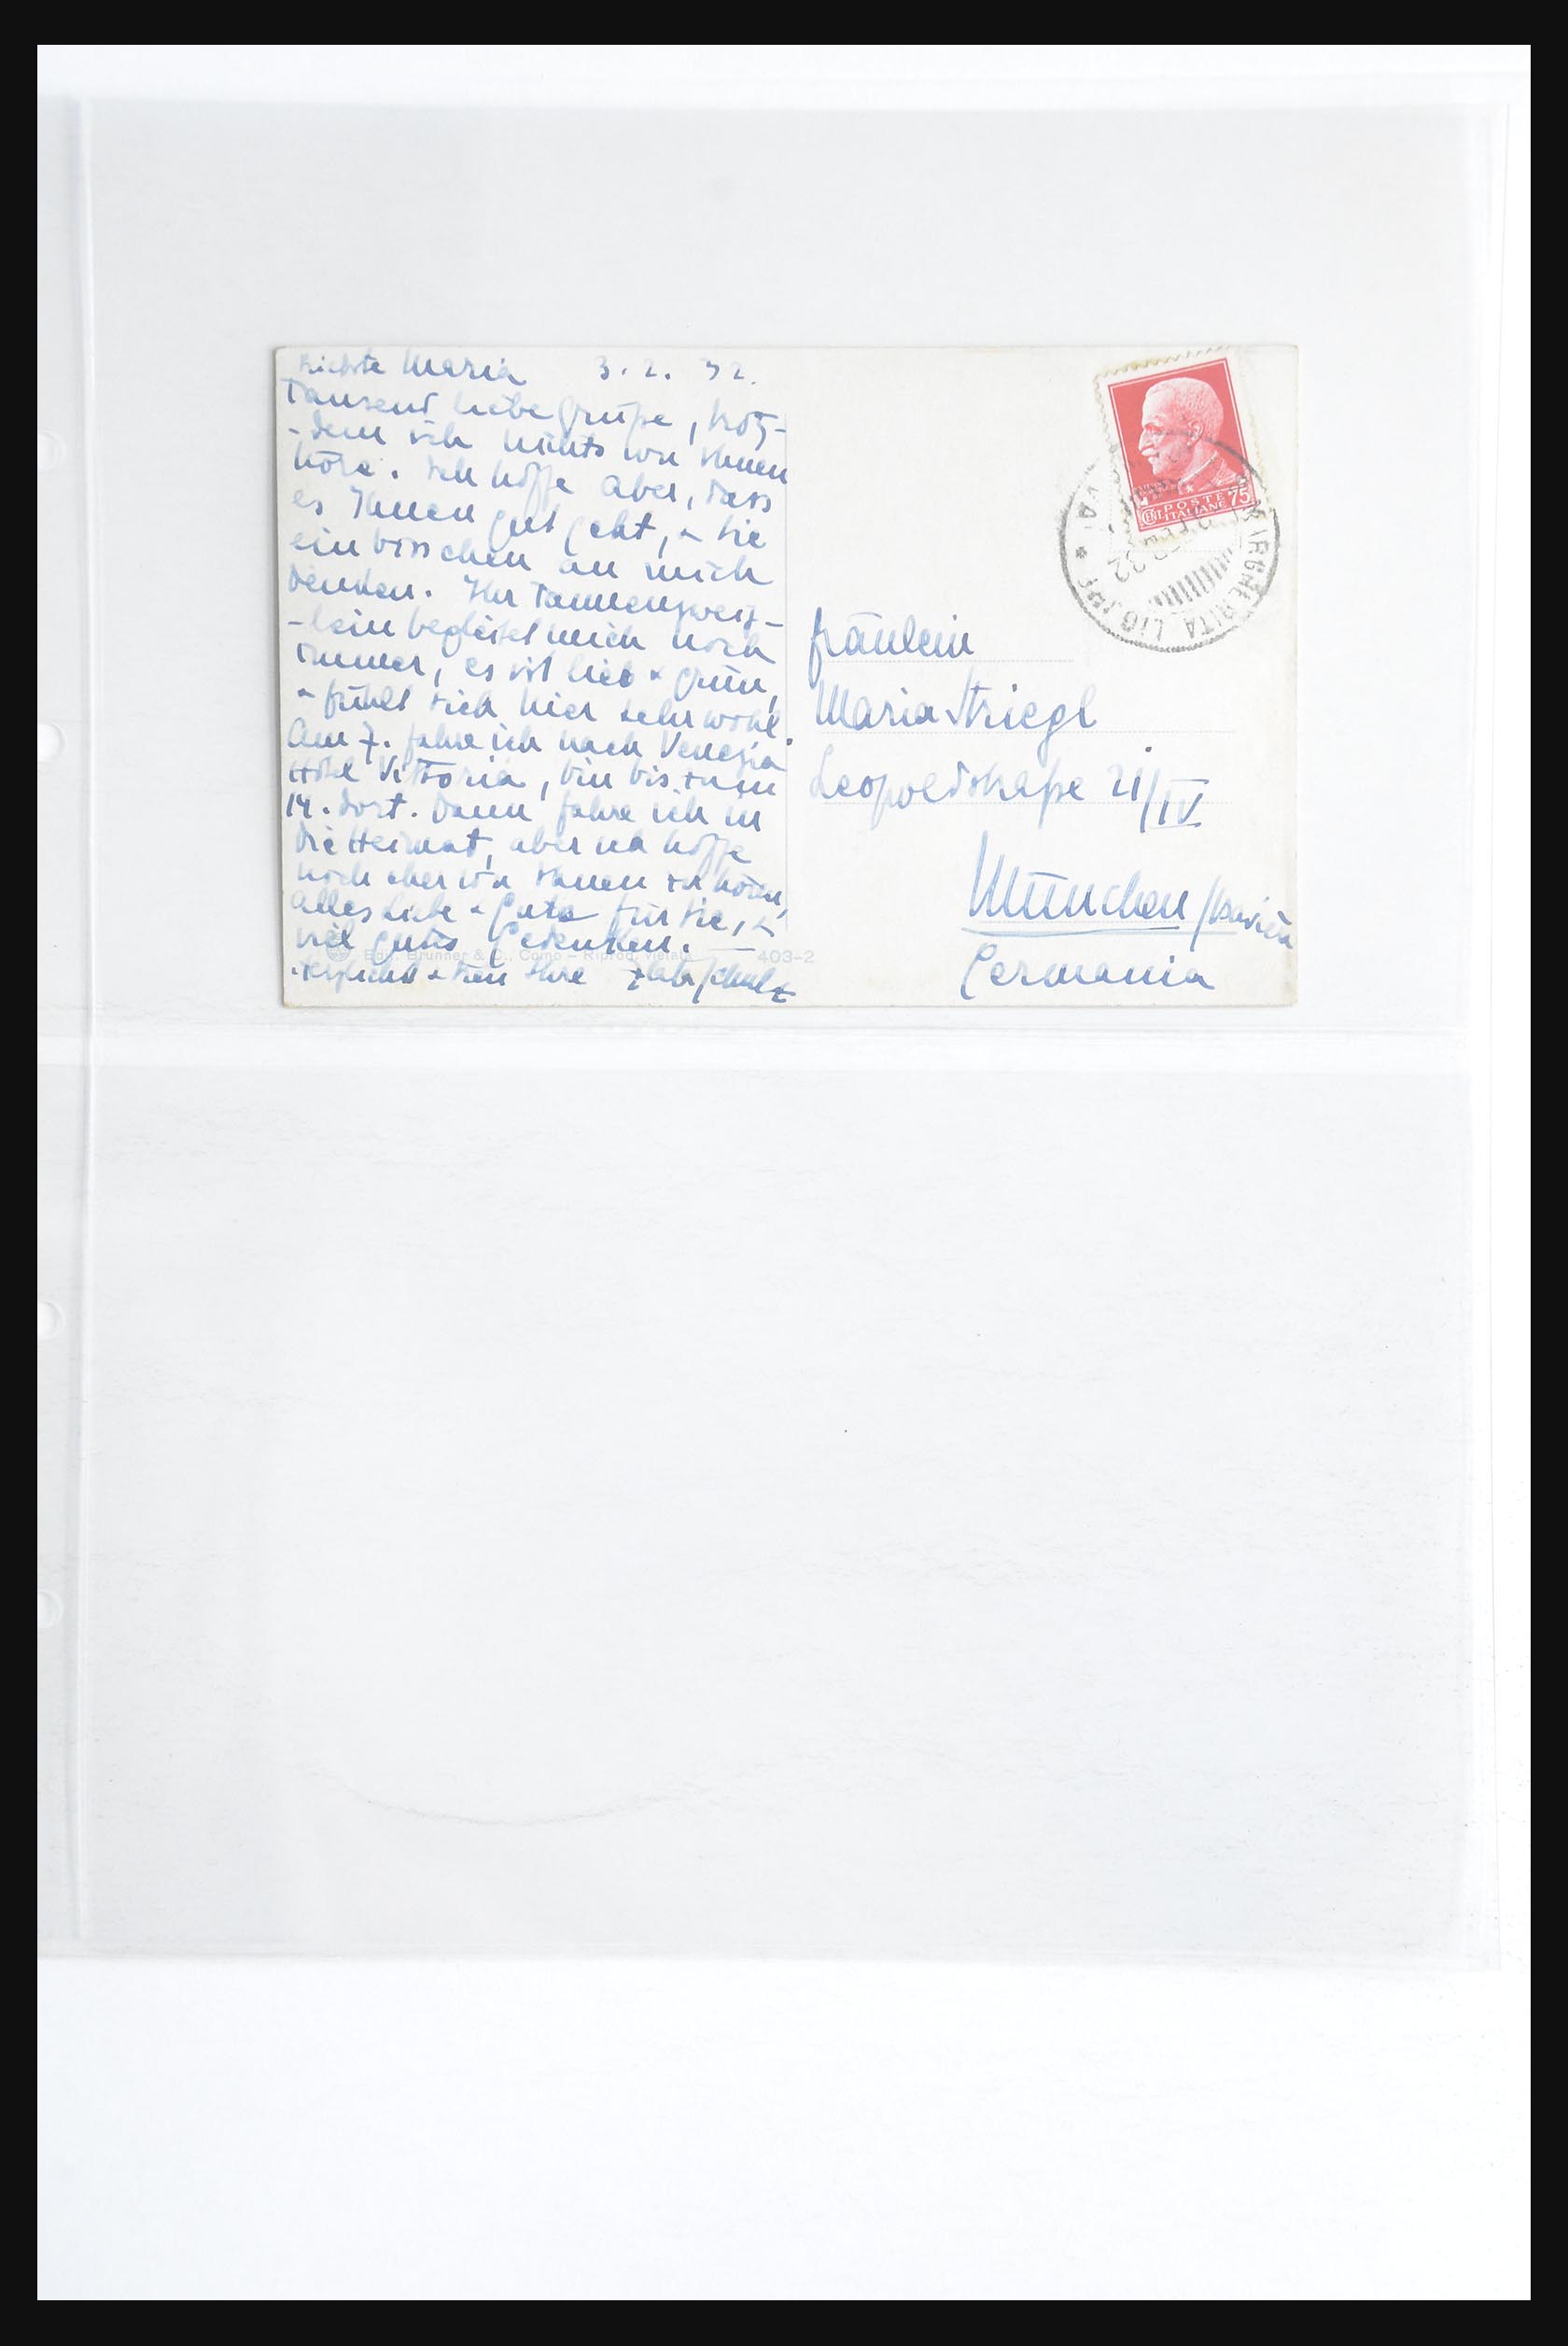 Liebste Maria 3. 2. 32.
Tausend liebe Grüße, trotz-
-dem ich nichts von Ihnen
höre. Ich hoffe aber, dass
es Ihnen gut geht, & Sie
ein bisschen an mich
denken. Ihr Tannenzweig-
-lein begleitet mich noch
immer, es ist lieb & grün,
& fühlt sich hier sehr wohl.
Am 7. fahre ich nach Venezia
Hotel Vittoria, bin bis zum
14. dort. Dann fahre ich in
die Heimat, aber ich hoffe
noch eher von Ihnen zu hören,
alles Liebe & Gute für Sie, &
viel gutes Gedenken.
Herzlichst & treu Ihre
Edit. Brunner & C., Como – Riprod. vietata
403-2
POSTE
ITALIANE
CENT 75
LIGURE
FEB 32
Fräulein
Maria Striegl
Leopoldstraße 21/IV
München / Bavaria
Germania